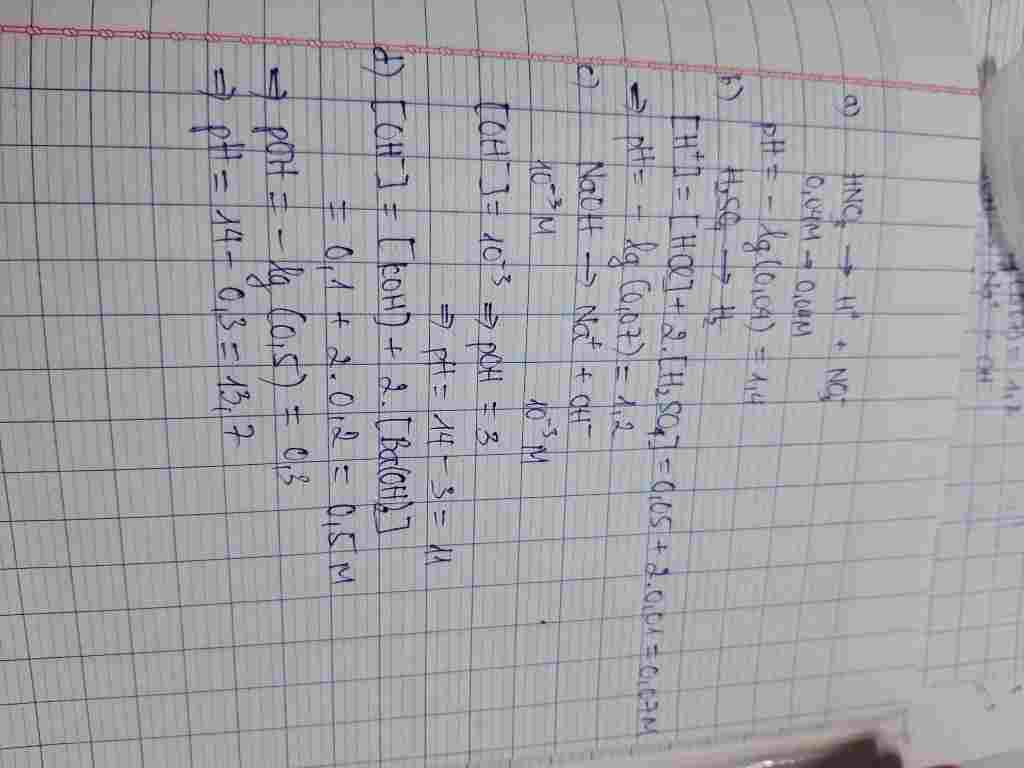 a) HNO₃ → H⁺ + NO₃⁻
0,04M → 0,04M
pH = - lg(0,04) = 1,4
b) H₂SO₄ → H₂
[H⁺] = [HCl] + 2.[H₂SO₄] = 0,05 + 2.0,01 = 0,07M
⇒ pH = - lg (0,07) = 1,2
c) NaOH → Na⁺ + OH⁻
10⁻³M 10⁻³M
[OH⁻] = 10⁻³ ⇒ pOH = 3
⇒ pH = 14 - 3 = 11
d) [OH⁻] = [KOH] + 2.[Ba(OH)₂]
= 0,1 + 2.0,2 = 0,5M
⇒ pOH = - lg (0,5) = 0,3
⇒ pH = 14 - 0,3 = 13,7